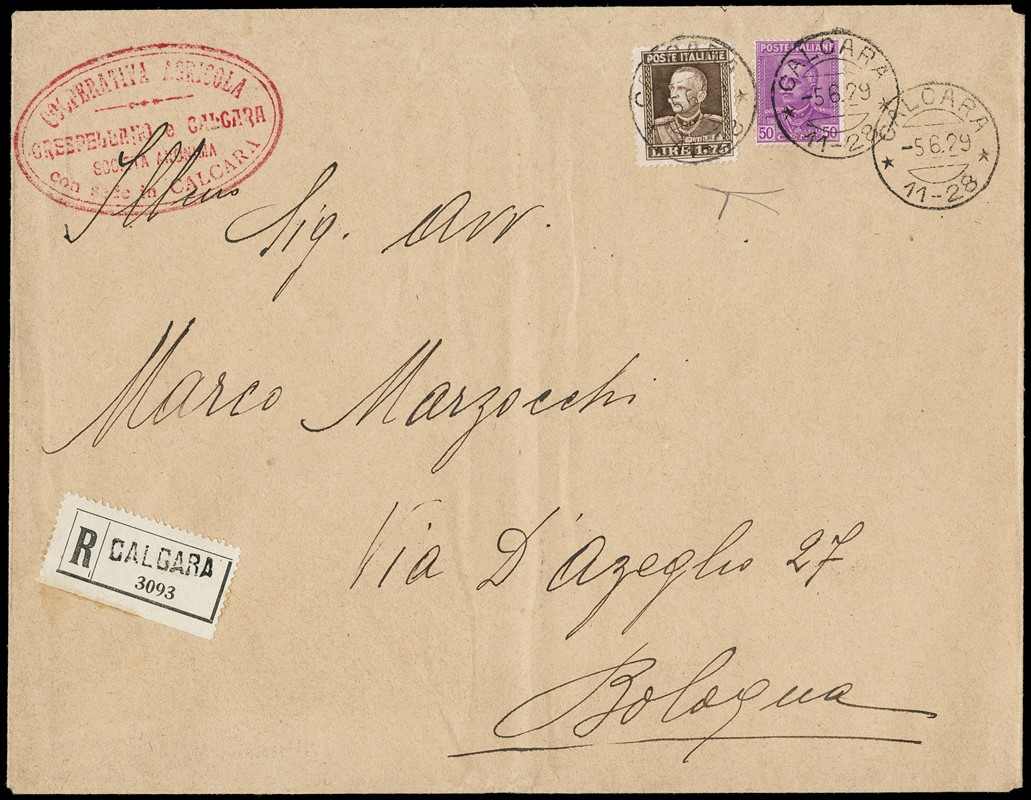 COOPERATIVA AGRICOLA
CRESPELLANO e CALCARA
SOCIETÀ ANONIMA
con sede in CALCARA
POSTE ITALIANE
LIRE 1.75
POSTE ITALIANE
50 50
CALCARA
-5 6.29
11-28
CALCARA
-5 6.29
11-28
Ill.mo
Sig. Avv.
Marco Marzocchi
R CALCARA
3093
Via D'Azeglio 27
Bologna